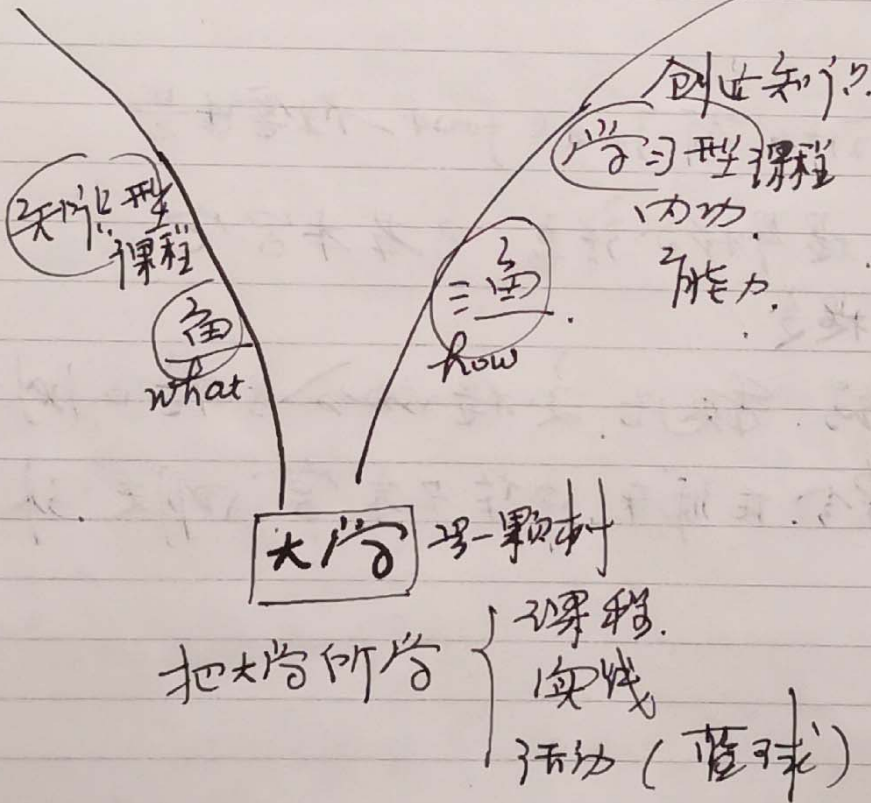 知识型
课程
鱼
what
创造知识
学习型课程
内功
能力
三渔
how
大学 是一颗树
把大学所学
课程
实践
活动(篮球)